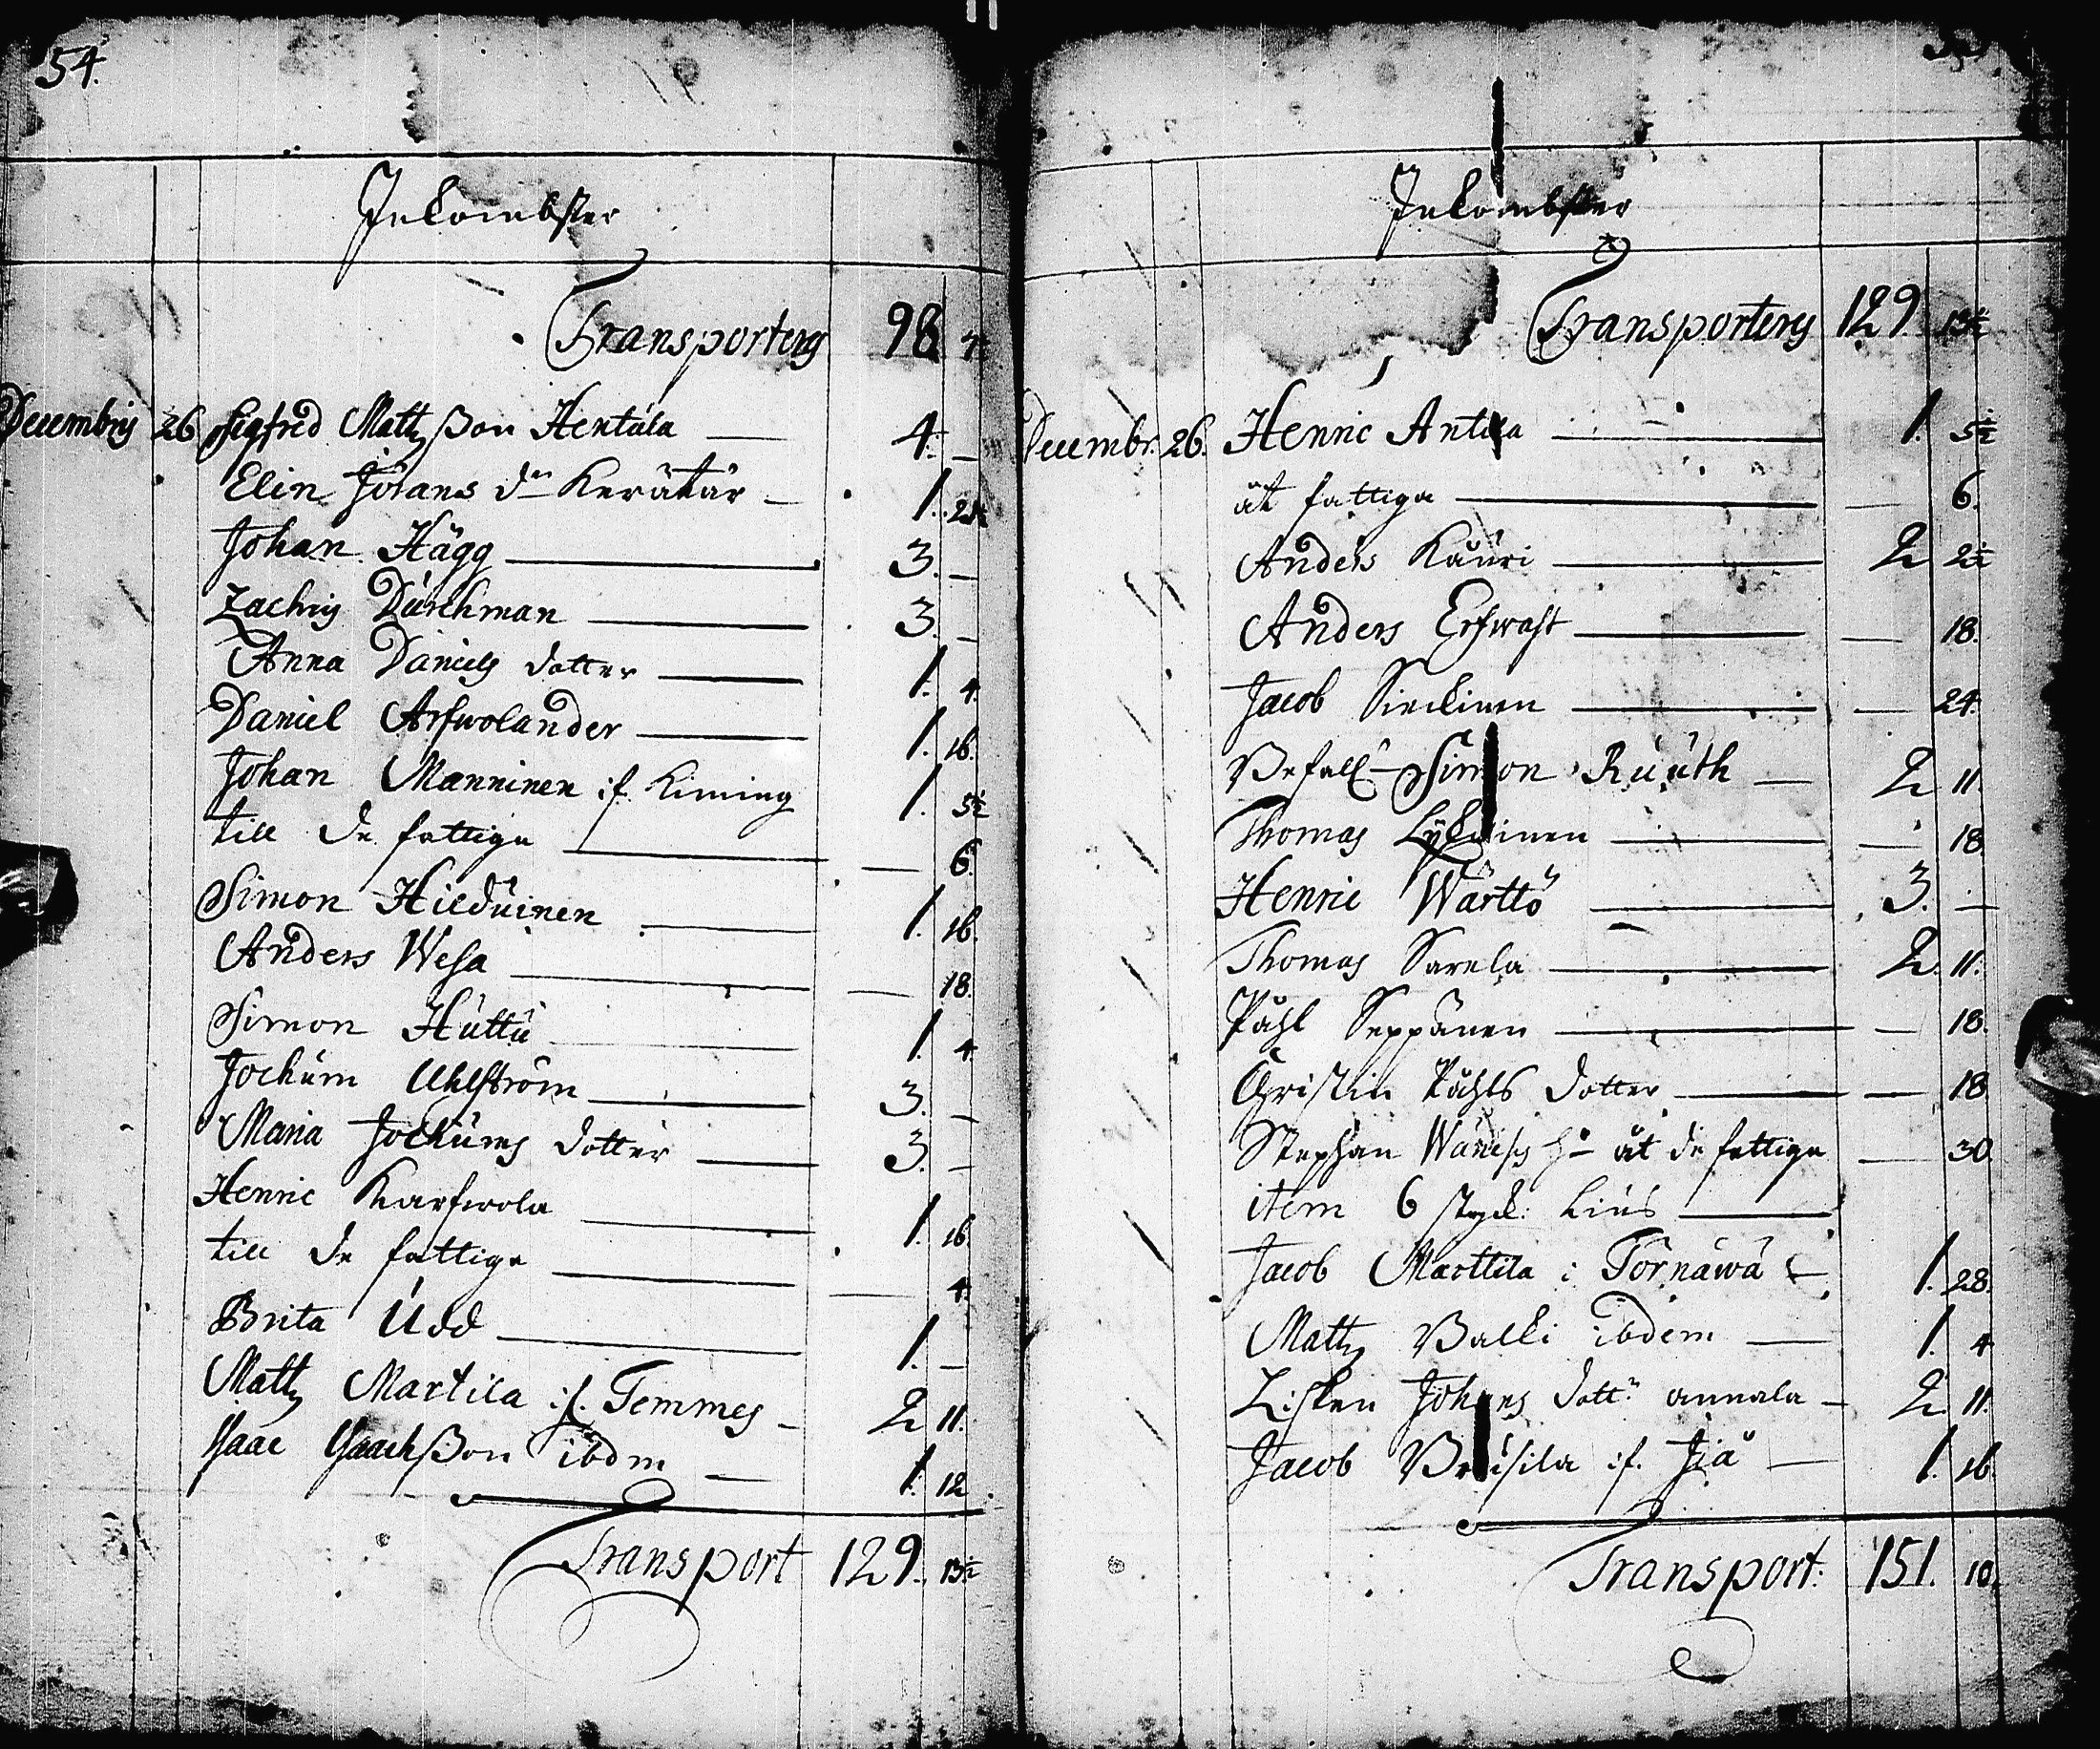 54.
Inkombster
Transporterg 98
Decembris 26 Sigfred Mattzßon Hentula 4. —
Elin Johans dr Kerätär 1.
Johan Hägg 3. —
Zachris Durchman 3. —
Anna Daniels dotter 1. 4.
Daniel Arfwolander 1. 16.
Johan Manninen if. Liming 1. 5½
till de fattige — 6.
Simon Hilduinen 1. 16.
Anders Wesa — 18.
Simon Huttu 1. 4
Jochum Uhlström 3. —
Maria Jochums dotter 3. —
Henric Karfwola 1. 16.
till de fattige — 4.
Brita Udd 1. —
Mattz Martila if. Temmes 2 11.
Isaac Isaachßon ibdm 1. 12
Transport 129. 13½
Inkombster
Transporterg 129. 13½
Decembr. 26. Henric Antila 1. 5½
åt fattiga — 6.
Anders Kauri 2 2½
Anders Erfwast — 18.
Jacob Sirckinen — 24.
Befall Simon Ruuth 2 11.
Thomas Lyckinen — 18.
Henric Wärttö 3. —
Thomas Sarela 2. 11.
Påhl Seppänen — 18.
Christin Påhls dotter — 18
Stephan åt de fattige — 30
item 6 styck: Lius
Jacob Marttila i Törnäwä 1. 28.
Mattz Balki ibdem 1. 4
Lisken Johans dott: annala 2. 11.
Jacob if. Jiå 1. 16.
Transport: 151. 10.